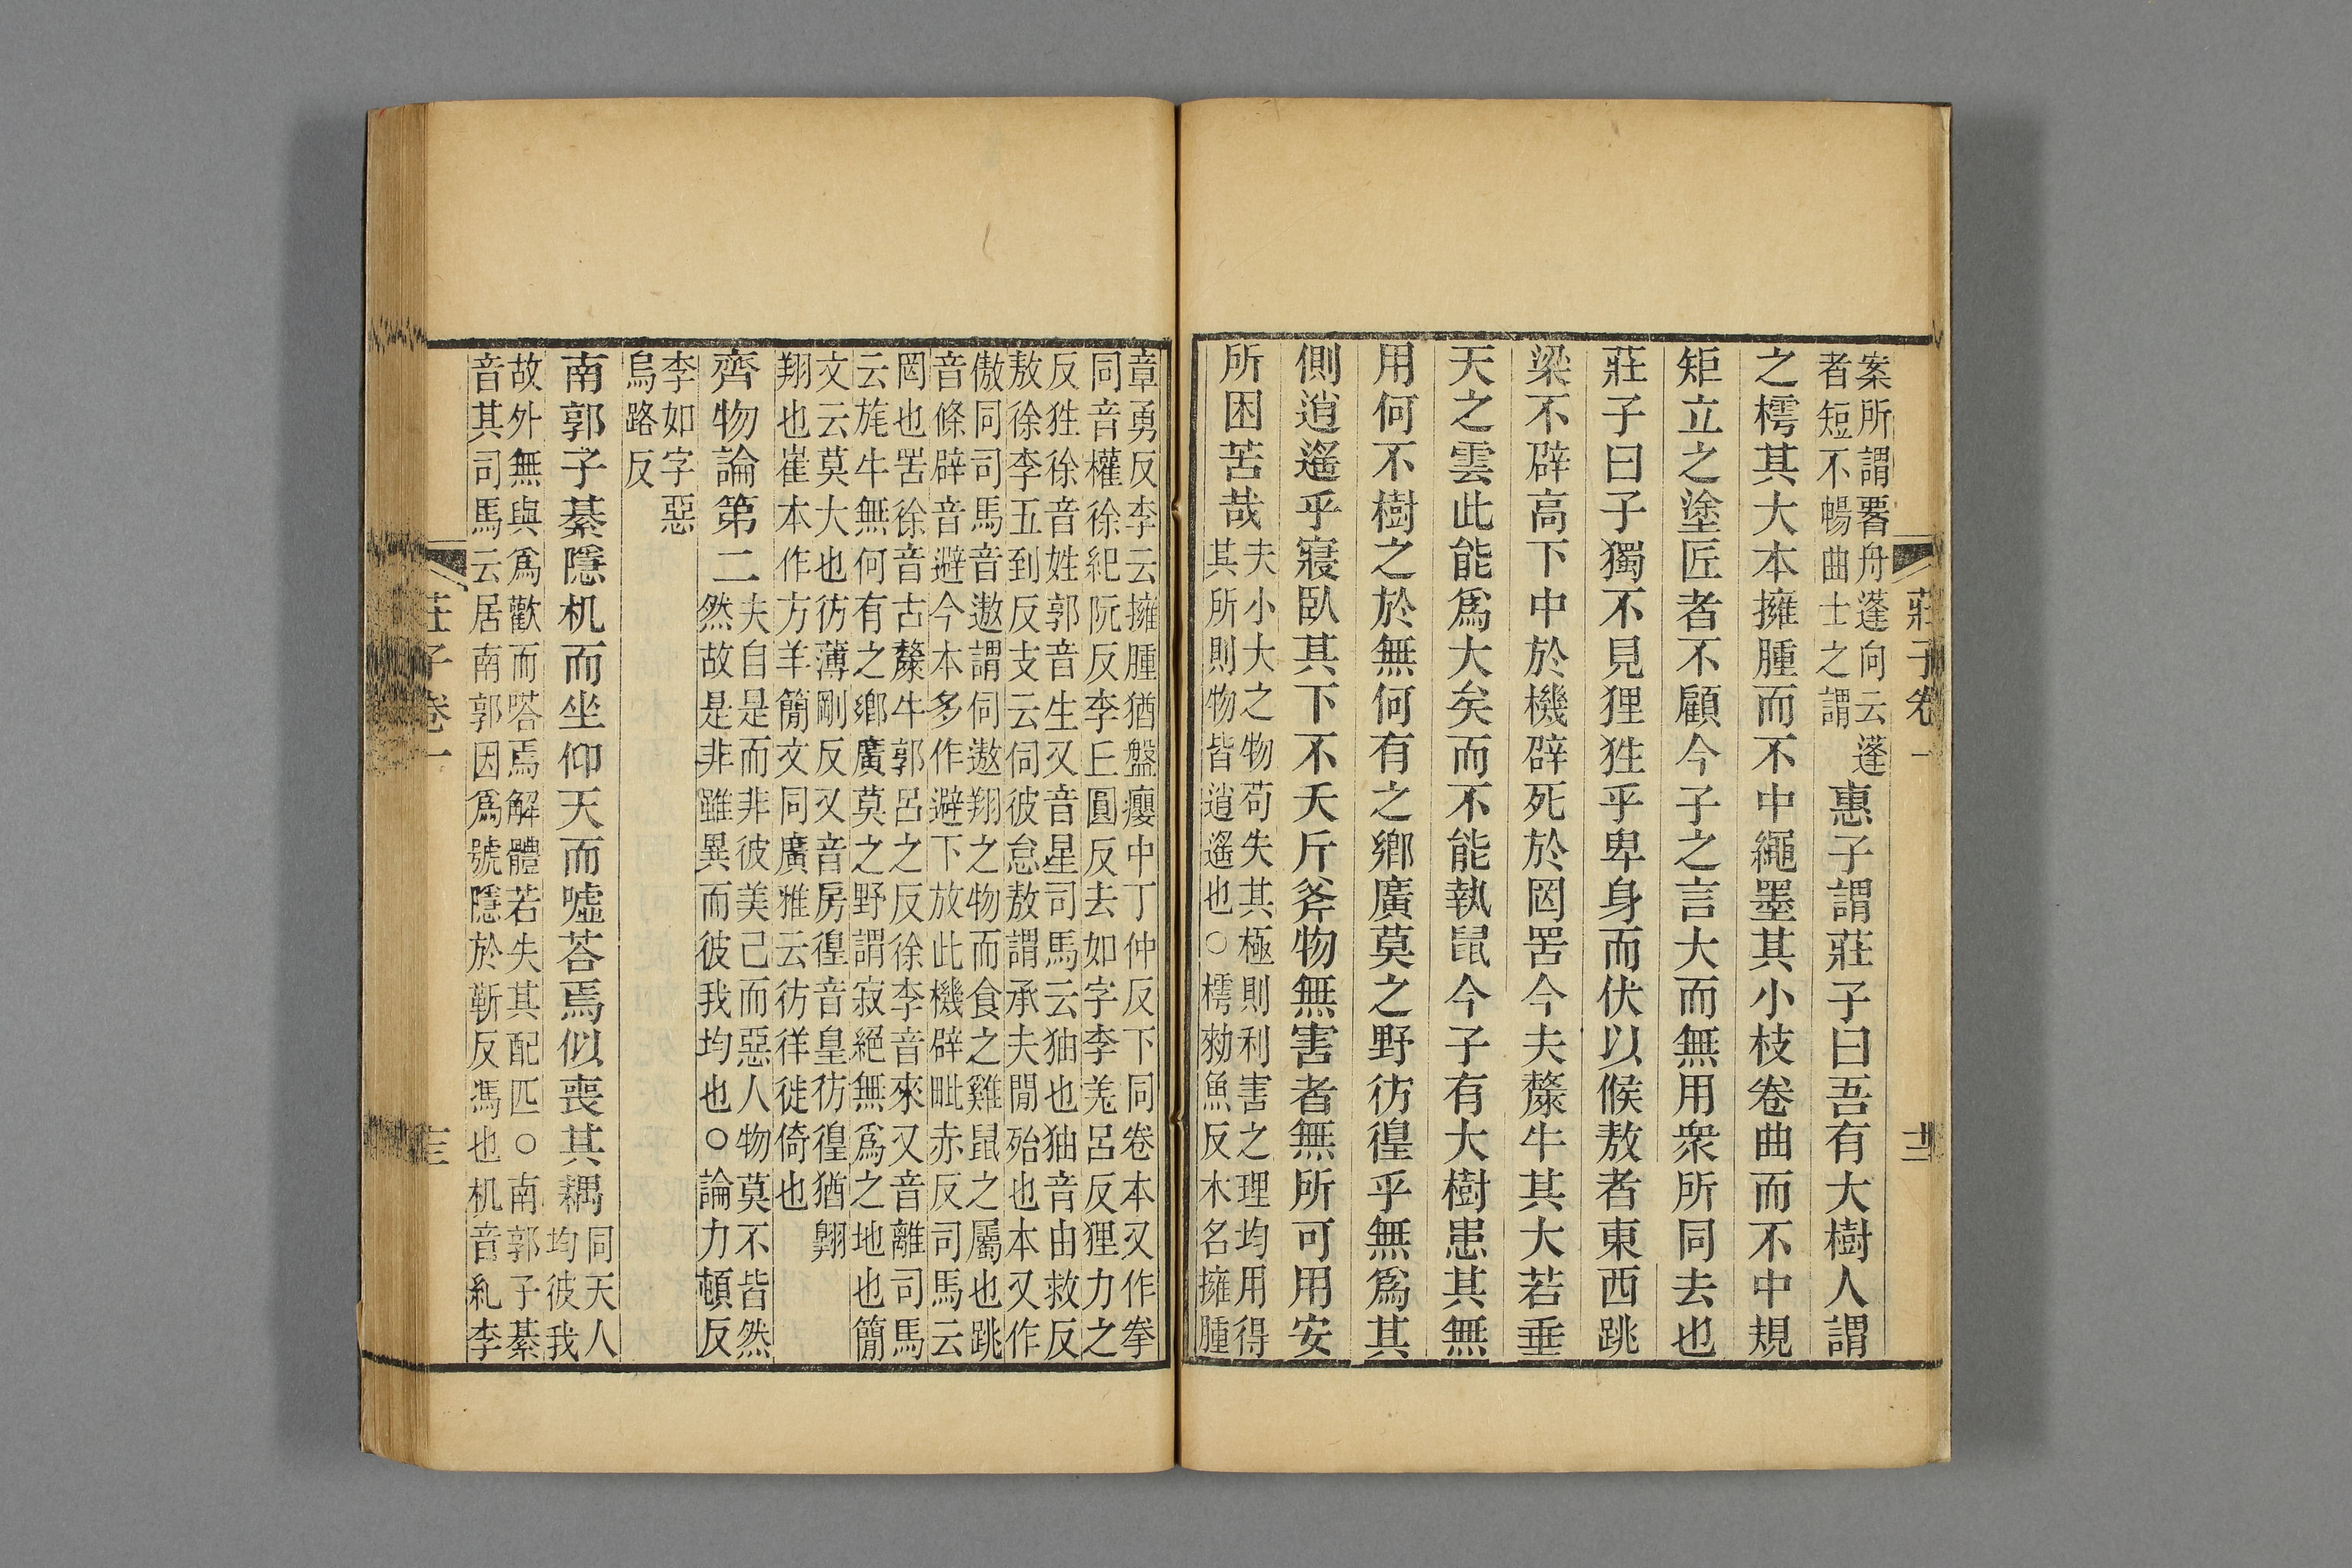 莊子卷一
十二
案所謂覆舟蓬向云蓬
者短不暢曲士之謂
惠子謂莊子曰吾有大樹人謂
之樗其大本擁腫而不中繩墨其小枝卷曲而不中規
矩立之塗匠者不顧今子之言大而無用衆所同去也
莊子曰子獨不見狸狌乎卑身而伏以候敖者東西跳
梁不辟高下中於機辟死於罔罟今夫斄牛其大若垂
天之雲此能爲大矣而不能執鼠今子有大樹患其無
用何不樹之於無何有之鄉廣莫之野彷徨乎無爲其
側逍遙乎寢臥其下不夭斤斧物無害者無所可用安
所困苦哉
夫小大之物苟失其極則利害之理均用得
其所則物皆逍遙也○樗勑魚反木名擁腫
章勇反李云擁腫猶盤癭中丁仲反下同卷本又作拳
同音權徐紀阮反李丘圓反去如字李羌呂反狸力之
反狌徐音姓郭音生又音星司馬云狖也狖音由救反
敖徐李五到反支云伺彼怠敖謂承夫閒殆也本又作
傲同司馬音遨謂伺遨翔之物而食之雞鼠之屬也跳
音條辟音避今本多作避下放此機辟毗赤反司馬云
罔也罟徐音古斄牛郭呂之反徐李音來又音離司馬
云旄牛無何有之鄉廣莫之野謂寂絕無爲之地也簡
文云莫大也彷薄剛反又音房徨音皇彷徨猶翱
翔也崔本作方羊簡文同廣雅云彷徉徙倚也
齊物論第二
夫自是而非彼美己而惡人物莫不皆然
然故是非雖異而彼我均也○論力頓反
李如字惡
烏路反
南郭子綦隱机而坐仰天而噓荅焉似喪其耦
同天人
均彼我
故外無與爲歡而嗒焉解體若失其配匹○南郭子綦
音其司馬云居南郭因爲號隱於靳反馮也机音紀李
莊子卷一